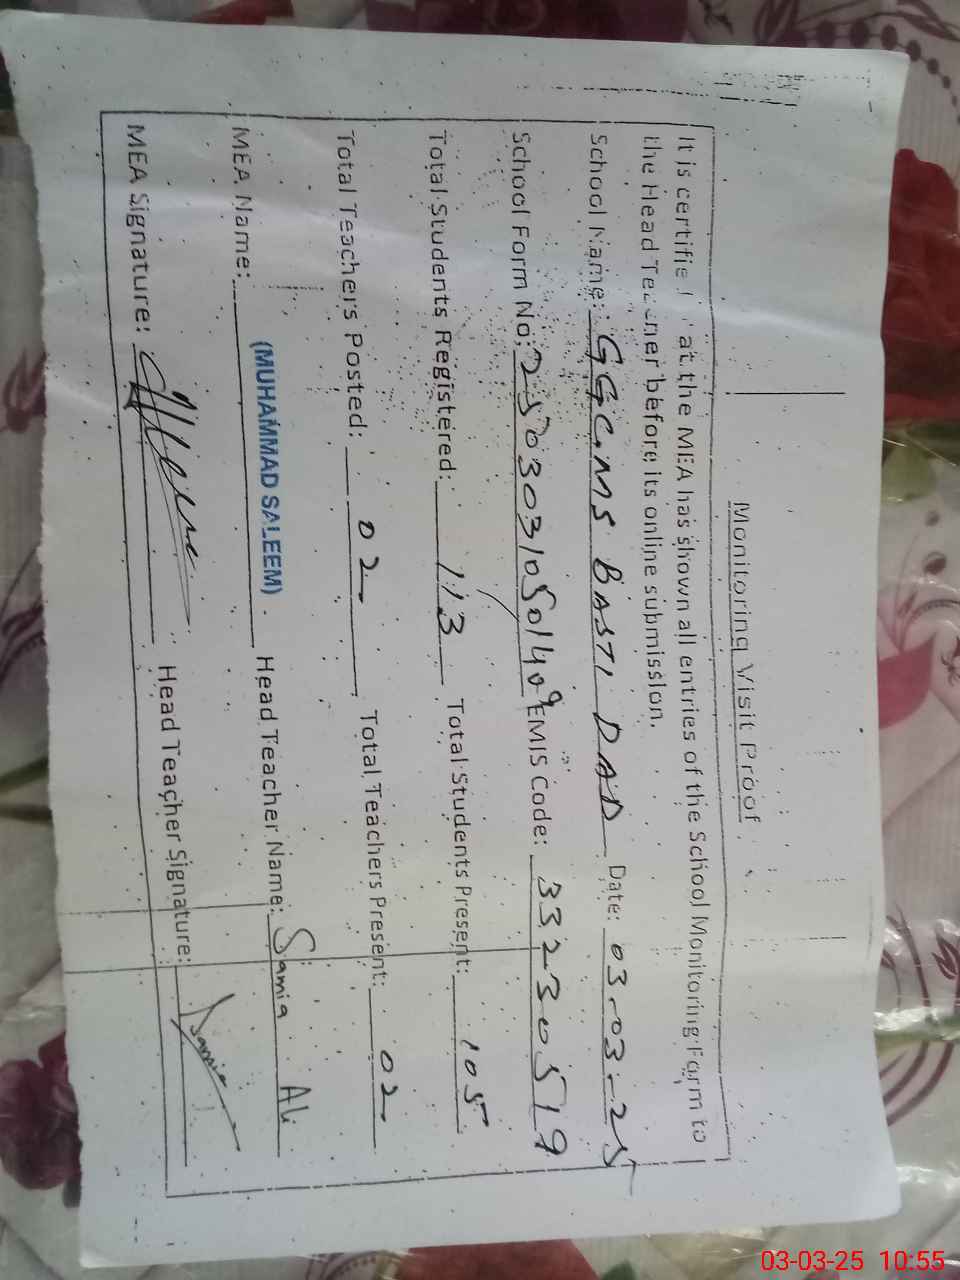 Monitoring Visit Proof
It is certified that the MEA has shown all entries of the School Monitoring Form to
the Head Teacher before its online submission.
School Name: GGCMS BASTI DAD Date: 03-03-25
School Form No: EMIS Code: 33230519
Total Students Registered: 113 Total Students Present: 105
Total Teachers Posted: 02 Total Teachers Present: 02
MEA Name: (MUHAMMAD SALEEM) Head Teacher Name: Samia Ali
MEA Signature: Head Teacher Signature: Samia
03-03-25 10:55